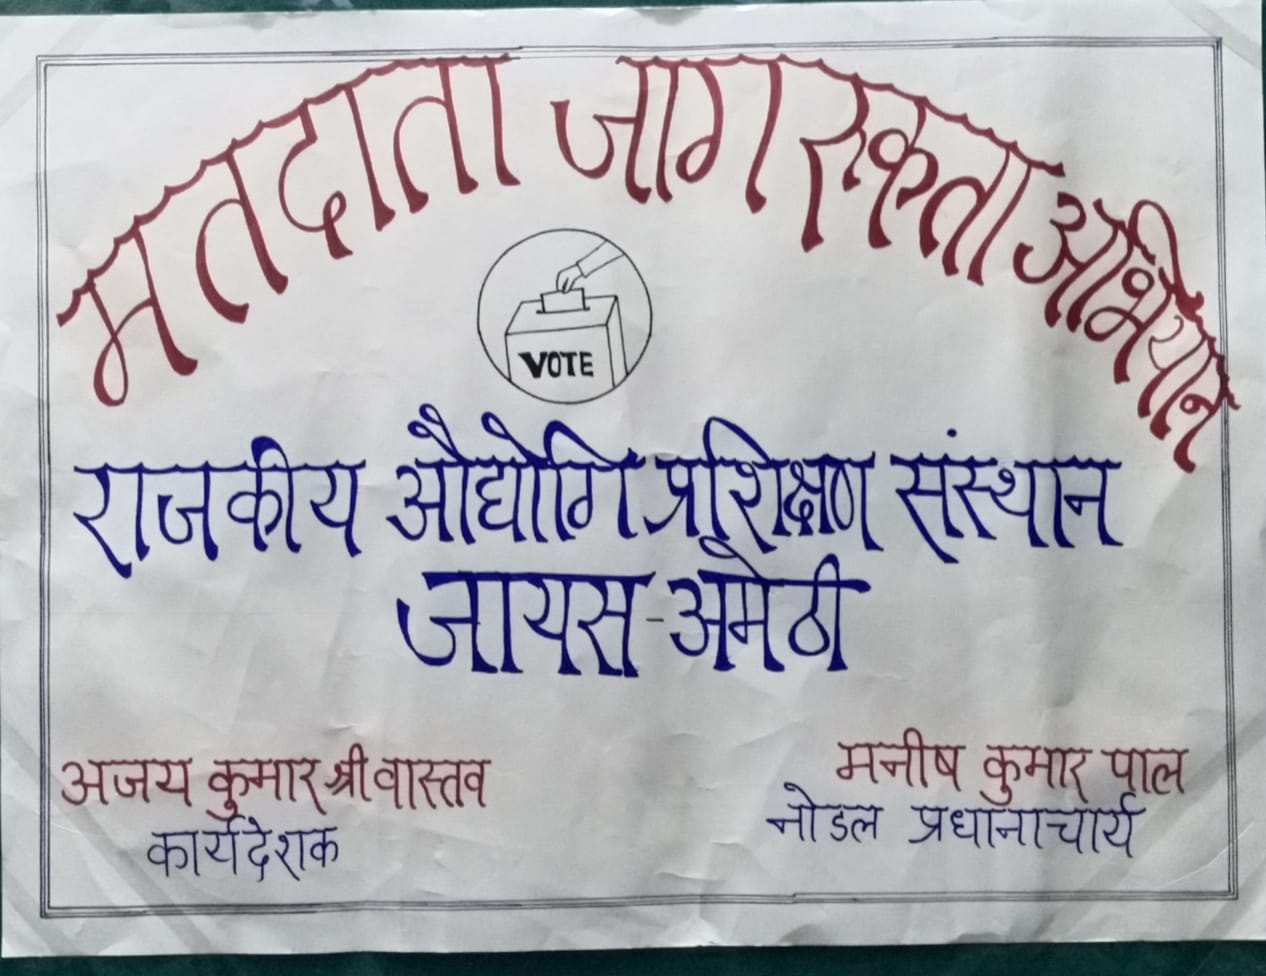 मतदाता जागरुकता अभियान
VOTE
राजकीय औद्योगि प्रशिक्षण संस्थान
जायस-अमेठी
अजय कुमार श्रीवास्तव
कार्यदेशक
मनीष कुमार पाल
नोडल प्रधानाचार्य